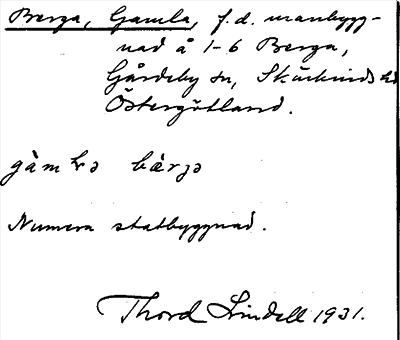 Berga, Gamla, f.d. manbygg-
nad å 1-6 Berga,
Gårdeby sn, Skärkinds hd
Östergötland.
gàmḷɔ bærjɔ
Numera statbyggnad.
Thord Lindell 1931.